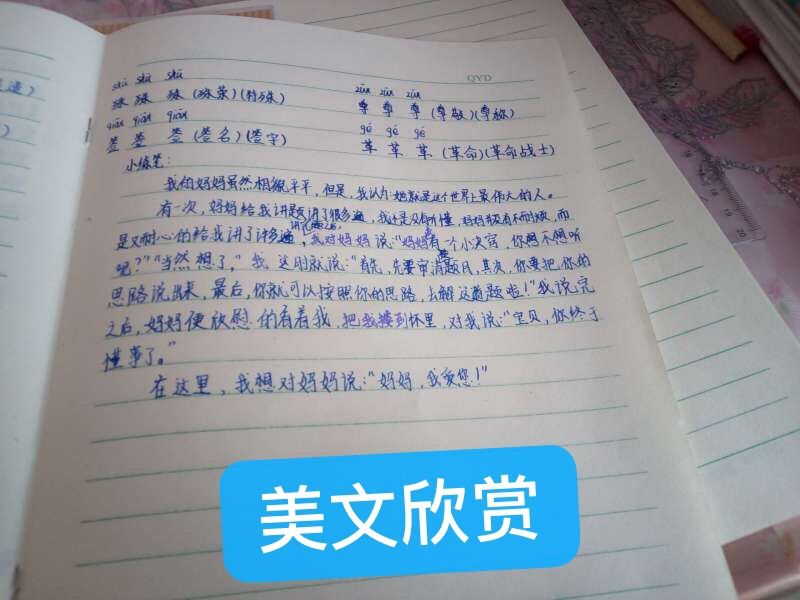 QYD
shū shū shū zūn zūn zūn
殊 殊 殊 (殊荣)(特殊) 尊 尊 尊 (尊敬)(尊称)
qiān qiān qiān gé gé gé
签 签 签 (签名)(签字) 革 革 革 (革命)(革命战士)
小练笔:
我的妈妈虽然相貌平平,但是,我认为她就是这个世界上最伟大的人。
有一次,妈妈给我讲题,讲了很多遍,我还是没有听懂,妈妈并没有不耐烦,而
是又耐心的给我讲了许多遍,我对妈妈说:“妈妈有一个小决窍,你想不想听
呢?”“当然想了。”我这时就说:“首先,先要审清题目,其次,你要把你的
思路说出来,最后,你就可以按照你的思路,去解这道题啦!”我说完
之后,妈妈便欣慰的看着我,把我搂到怀里,对我说:“宝贝,你终于
懂事了。”
在这里,我想对妈妈说:“妈妈,我爱您!”
美文欣赏